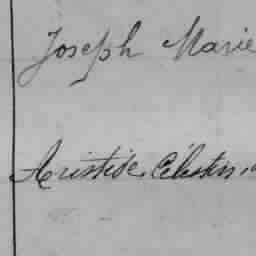 Joseph Marie
Aristide Célestin